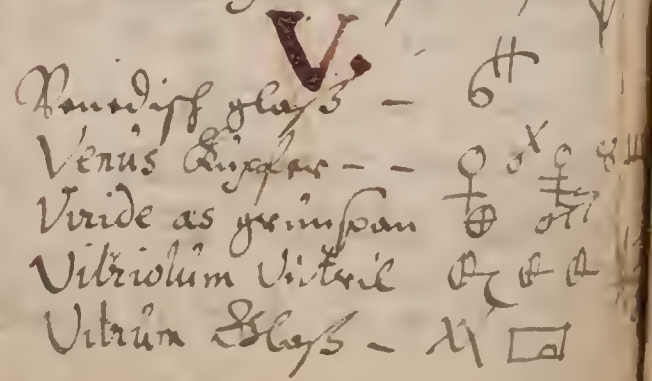 V.
Venedisch glaß –
Venus Kupffer – – ♀
Viride æs grünspan
Vitriolum Victril
Vitrum Glaß –